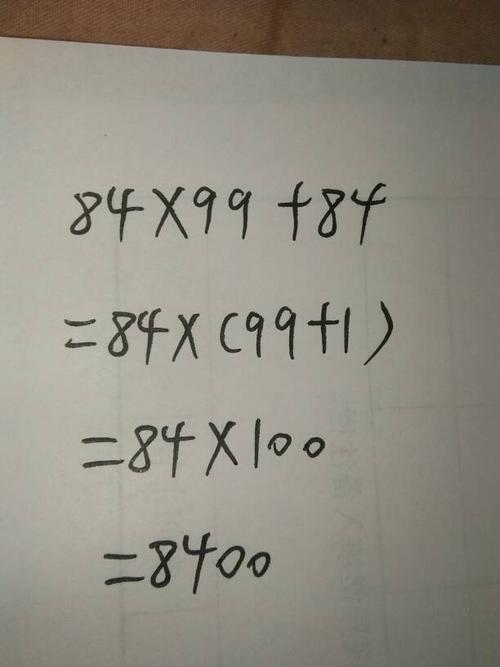 84×99+84
=84×(99+1)
=84×100
=8400